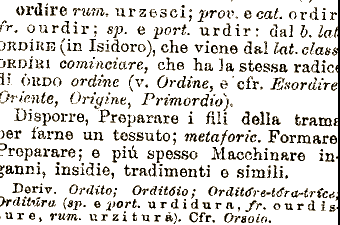 ordire rum. urzesci; prov. e cat. ordir
fr. ourdir; sp. e port. urdir: dal b. lat.
ORDÌRE (in Isidoro), che viene dal lat. class
ORDÌRI cominciare, che ha la stessa radice
di ORDO ordine (v. Ordine, e cfr. Esordire
Oriente, Origine, Primordio).
Disporre, Preparare i fili della trama
per farne un tessuto; metaforic. Formare
Preparare; e più spesso Macchinare in-
ganni, insidie, tradimenti e simili.
Deriv. Ordito; Orditóio; Orditóre-tóra-tríce;
Orditúra (sp. e port. urdidura, fr. ourdis-
ure, rum. urzitura). Cfr. Orsoio.